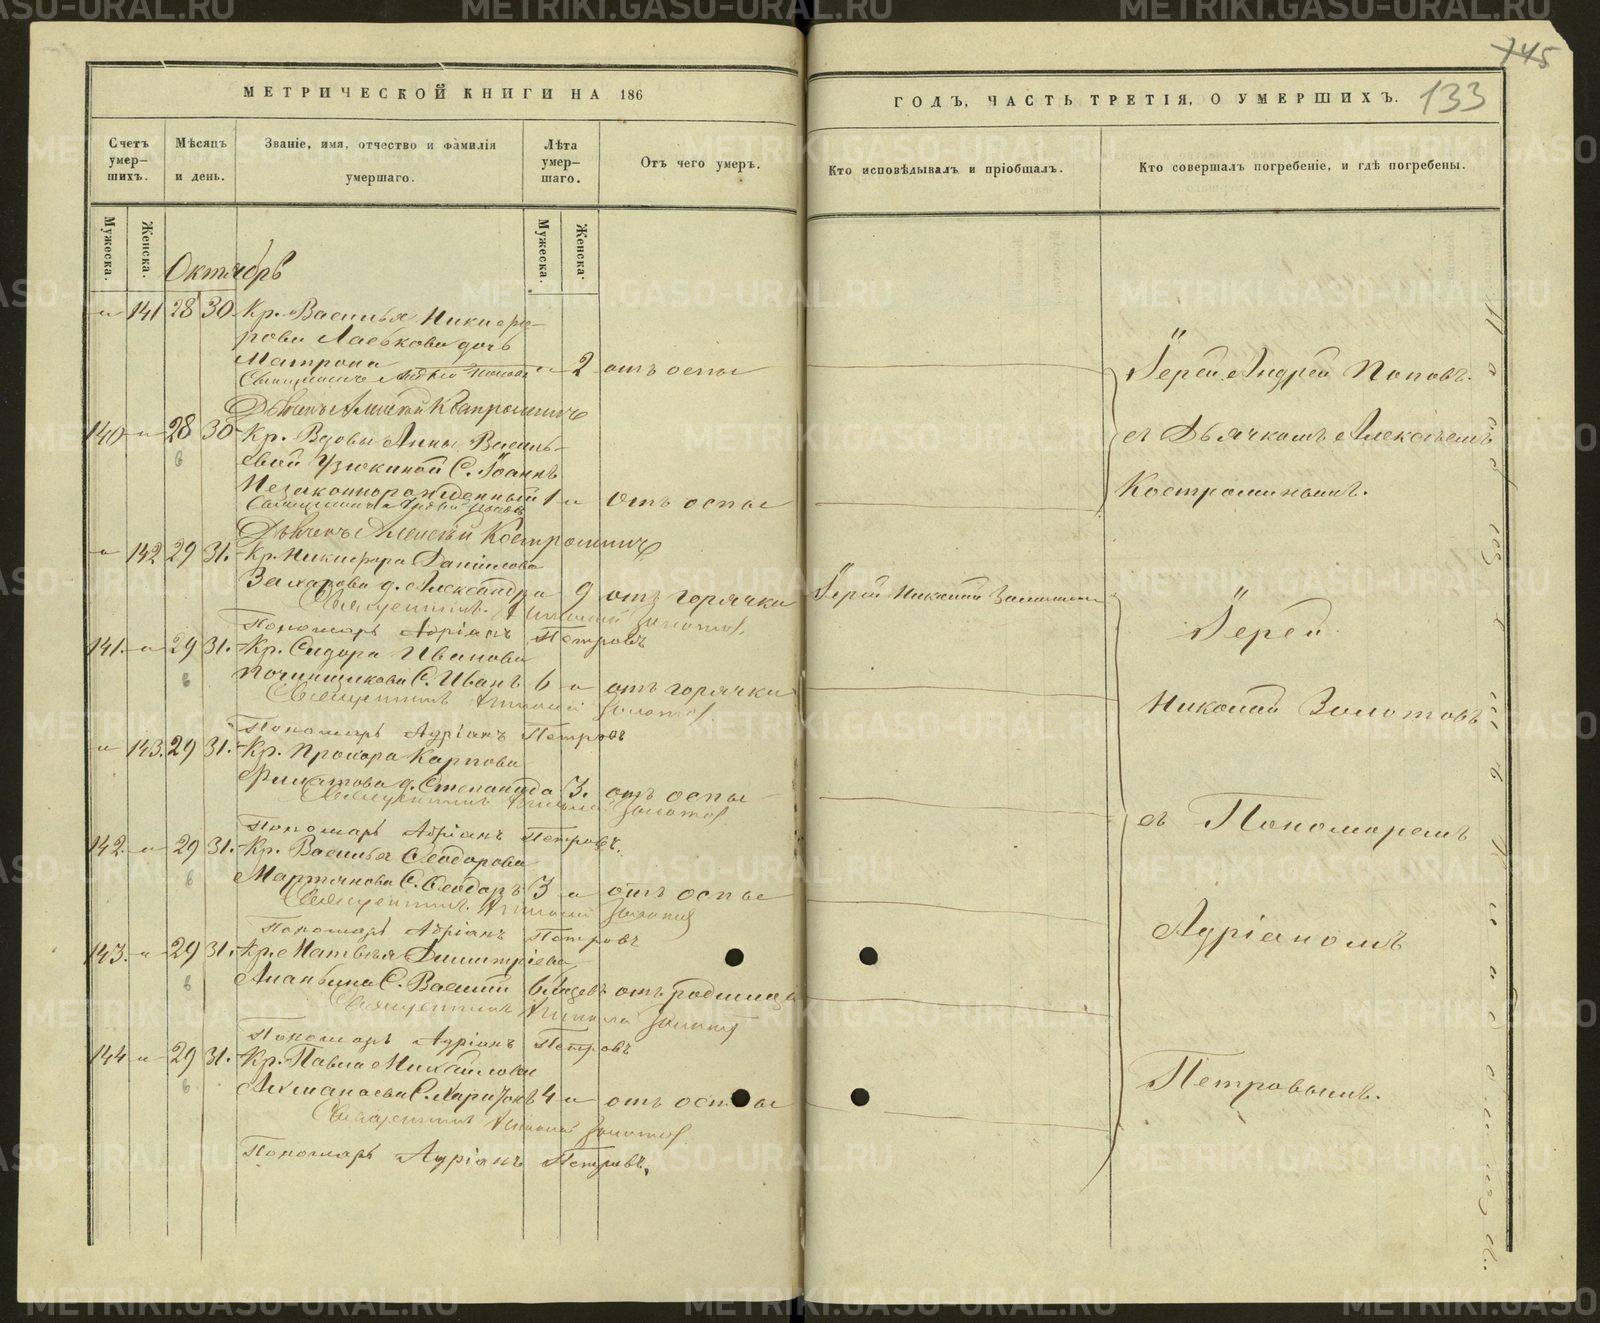 МЕТРИЧЕСКОЙ КНИГИ НА 186
Счетъ умер-
шихъ.
Мѣсяцъ
и день.
Званіе, имя, отчество и фамилія
умершаго.
Лѣта
умер-
шаго.
Отъ чего умеръ.
Мужеска.
Женска.
Мужеска.
Женска.
Октябрь
141 28 30 Кр. Василья Никифо-
рова дочь
Матрона 2 отъ оспы
Дьячекъ Алексѣй Костроминъ
140 28 30 Кр. Вдовы Анны Василь-
евой Узюкиной С. Іоаннъ
Незаконнорожденный 1 отъ оспы
Дьячекъ Алексѣй Костроминъ
142 29 31. Кр. Никифора Данилова
Захарова д. Александра 9 отъ горячки
Священникъ Николай Золотовъ
Пономарь Адріанъ Петровъ
141. 29 31. Кр. Сидора Иванова
Починщикова С. Иванъ 6 отъ горячки
Священникъ Николай Золотовъ
Пономарь Адріанъ Петровъ
143. 29 31. Кр. Прохора Карпова
Филатова д. Степанида 3. отъ оспы
Священникъ Николай Золотовъ
Пономарь Адріанъ Петровъ.
142. 29 31. Кр. Василья Ѳеодорова
Мартьянова С. Ѳеодоръ 3 отъ оспы
Священникъ Николай Золотовъ
Пономарь Адріанъ Петровъ
143. 29 31. Кр. Матвѣя Димитріева
Ананьина С. Василій 6 отъ родимца
Священникъ Николай Золотовъ
Пономарь Адріанъ Петровъ
144 29 31. Кр. Павла Михайлова
С. Харитонъ 4 отъ оспы
Священникъ Николай Золотовъ
Пономарь Адріанъ Петровъ.
745
133
ГОДЪ, ЧАСТЬ ТРЕТІЯ, О УМЕРШИХЪ.
Кто исповѣдывалъ и пріобщалъ.
Кто совершалъ погребеніе, и гдѣ погребены.
Іерей Андрей Поповъ
съ Дьячкомъ Алексѣемъ
Костроминымъ.
Іерей Николай Золотовъ
Іерей
Николай Золотовъ
съ Пономаремъ
Адріаномъ
Петровымъ.
METRIKI.GASO-URAL.RU